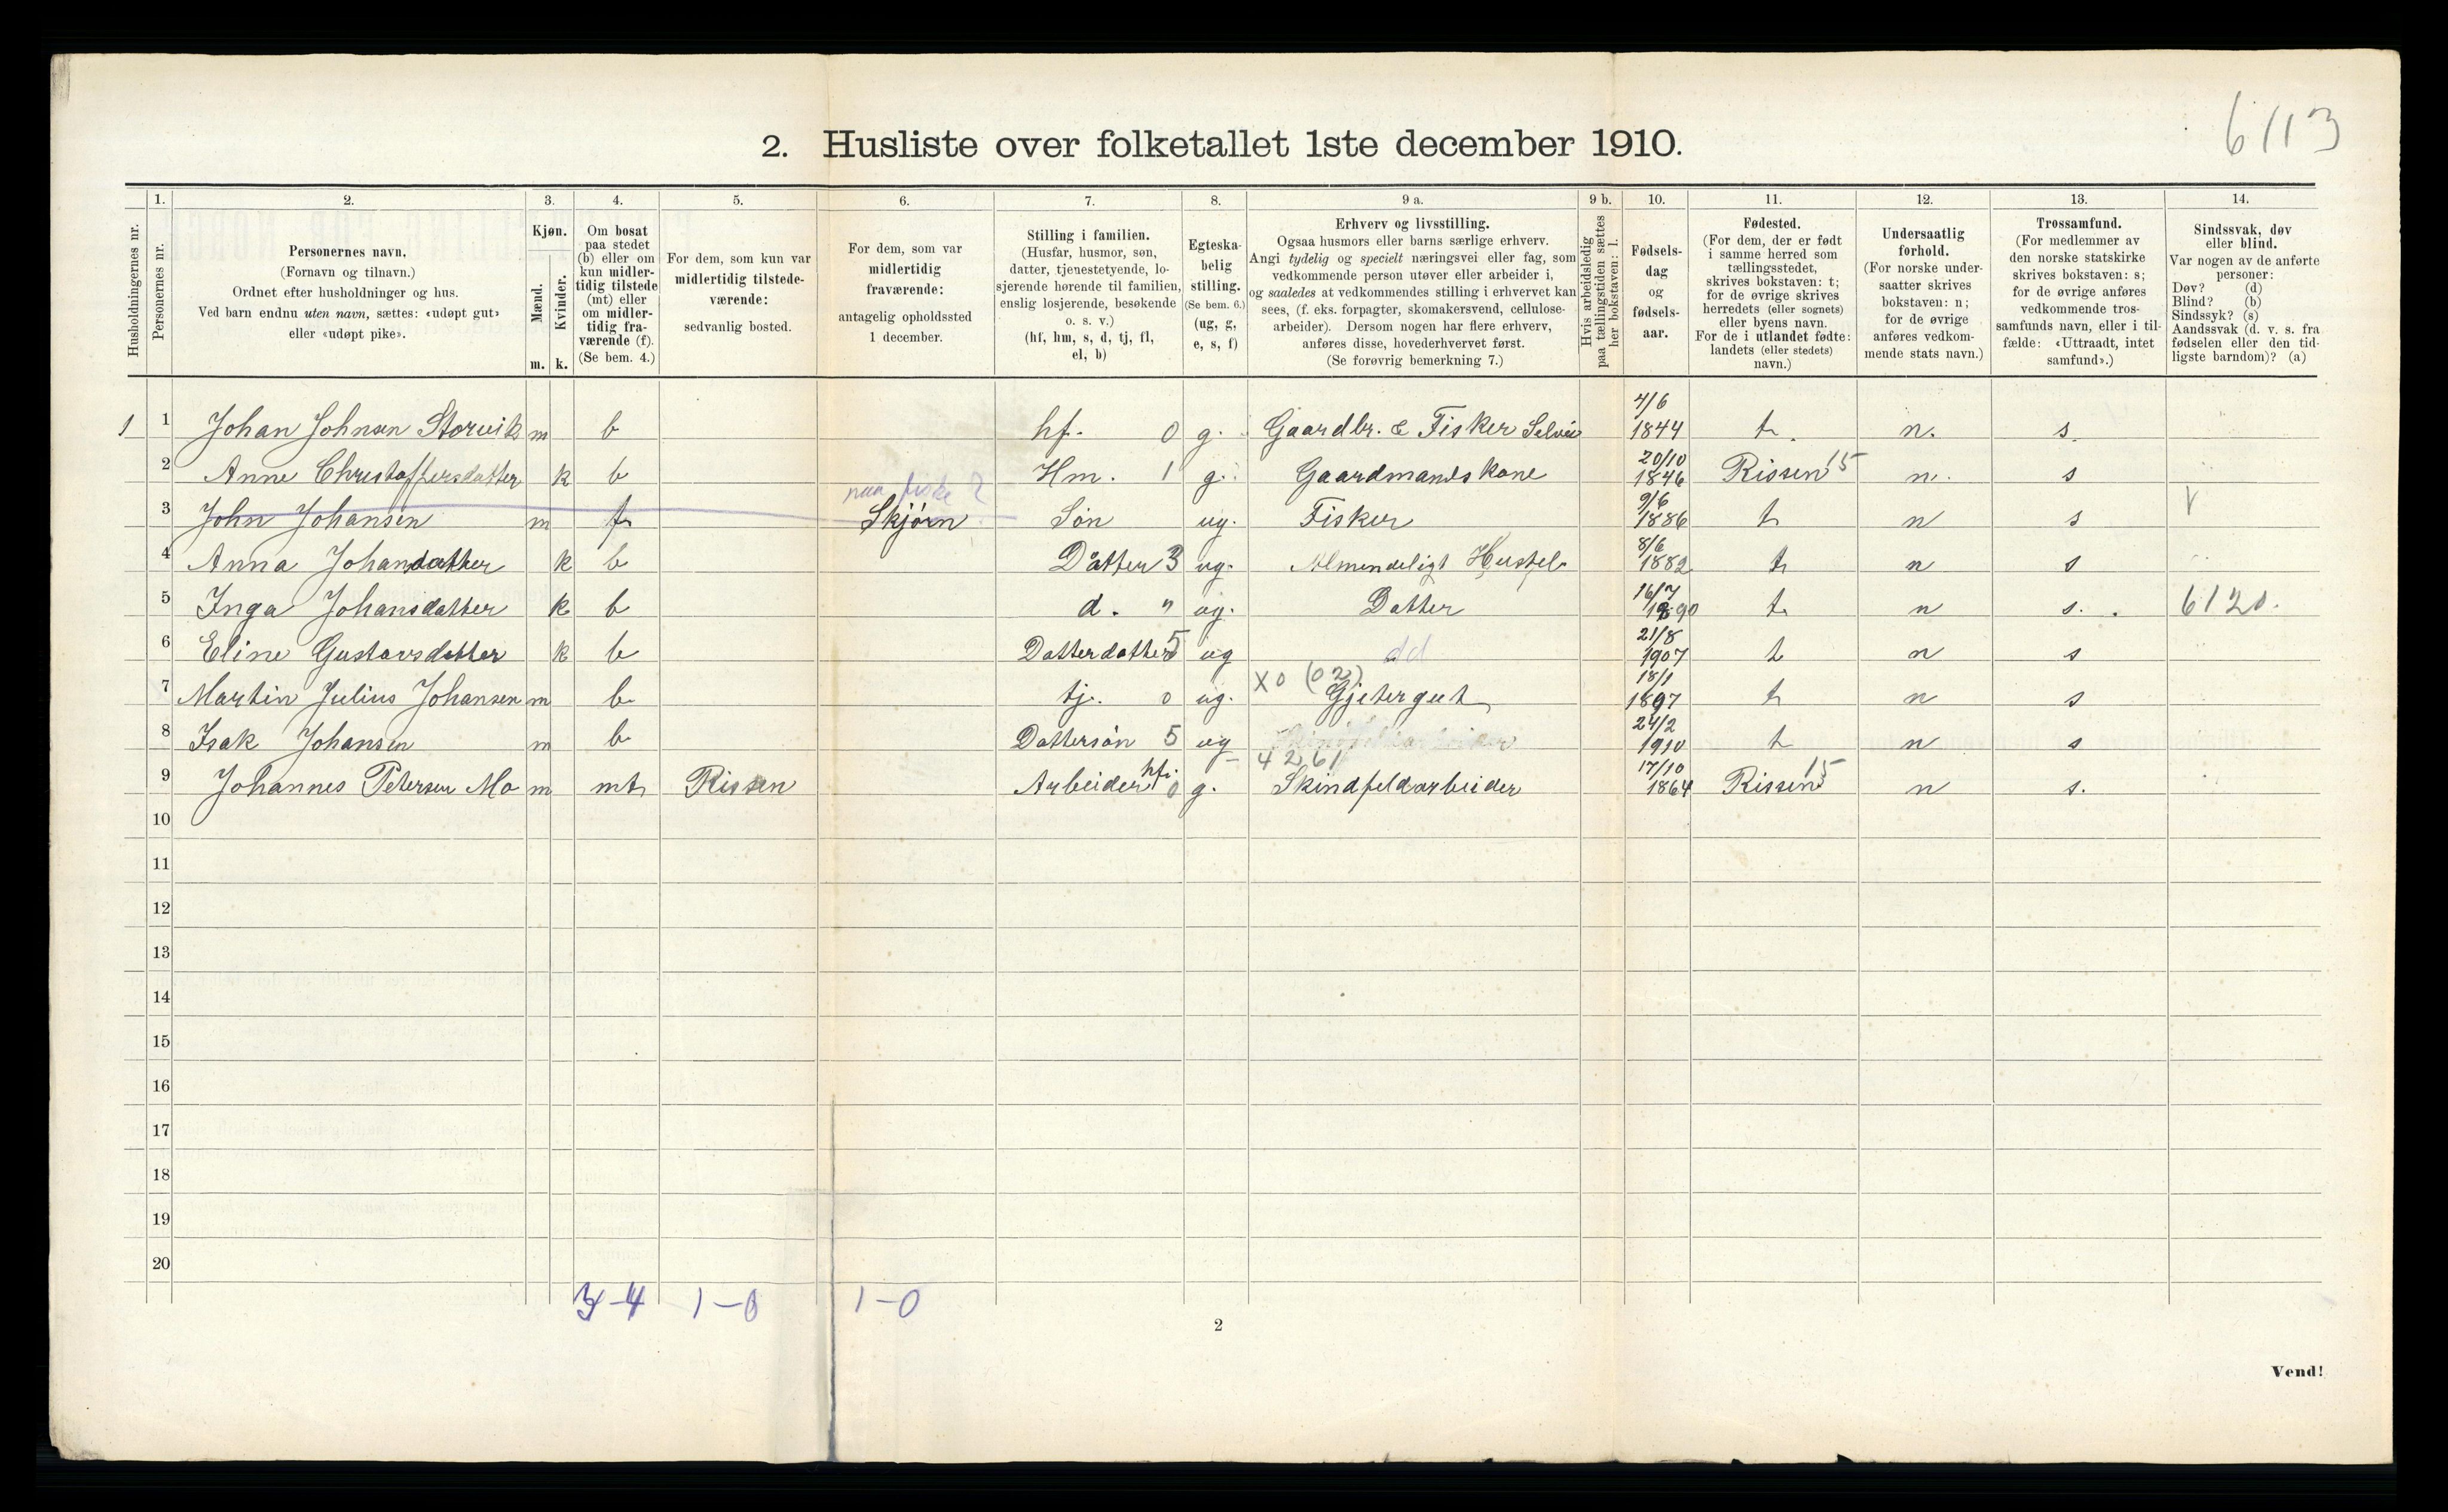 6113
2. Husliste over folketallet 1ste december 1910.
Husholdningernes nr.
1.
Personernes nr.
2.
Personernes navn.
(Fornavn og tilnavn.)
Ordnet efter husholdninger og hus.
Ved barn endnu uten navn, sættes: «udøpt gut»
eller «udøpt pike».
3.
Kjøn.
Mænd.
Kvinder.
m. k.
4.
Om bosat
paa stedet
(b) eller om
kun midler-
tidig tilstede
(mt) eller
om midler-
tidig fra-
værende (f).
(Se bem. 4.)
5.
For dem, som kun var
midlertidig tilstede-
værende:
sedvanlig bosted.
6.
For dem, som var
midlertidig
fraværende:
antagelig opholdssted
1 december.
7.
Stilling i familien.
(Husfar, husmor, søn,
datter, tjenestetyende, lo-
sjerende hørende til familien,
enslig losjerende, besøkende
o. s. v.)
(hf, hm, s, d, tj, fl,
el, b)
8.
Egteska-
belig
stilling.
(Se bem. 6.)
(ug, g,
e, s, f)
9 a.
Erhverv og livsstilling.
Ogsaa husmors eller barns særlige erhverv.
Angi tydelig og specielt næringsvei eller fag, som
vedkommende person utøver eller arbeider i,
og saaledes at vedkommendes stilling i erhvervet kan
sees, (f. eks. forpagter, skomakersvend, cellulose-
arbeider). Dersom nogen har flere erhverv,
anføres disse, hovederhvervet først.
(Se forøvrig bemerkning 7.)
9 b.
Hvis arbeidsledig
paa tællingstiden sættes
her bokstaven: l.
10.
Fødsels-
dag
og
fødsels-
aar.
11.
Fødested.
(For dem, der er født
i samme herred som
tællingsstedet,
skrives bokstaven: t;
for de øvrige skrives
herredets (eller sognets)
eller byens navn.
For de i utlandet fødte:
landets (eller stedets)
navn.)
12.
Undersaatlig
forhold.
(For norske under-
saatter skrives
bokstaven: n;
for de øvrige
anføres vedkom-
mende stats navn.)
13.
Trossamfund.
(For medlemmer av
den norske statskirke
skrives bokstaven: s;
for de øvrige anføres
vedkommende tros-
samfunds navn, eller i til-
fælde: «Uttraadt, intet
samfund».)
14.
Sindssvak, døv
eller blind.
Var nogen av de anførte
personer:
Døv? (d)
Blind? (b)
Sindssyk? (s)
Aandssvak (d. v. s. fra
fødselen eller den tid-
ligste barndom)? (a)
1 1 Johan Johnsen Storvik m b hf. 0 g. Gaardbr. & Fisker Selveie 4/6 1844 t. n. s.
2 Anne Christoffersdatter k b Hm. 1 g. Gaardmandskone 20/10 1846 Rissen 15 n. s
paa fiske?
3 John Johansen m f Skjørn Søn ug. Fisker 9/6 1886 t n s V
4 Anna Johansdatter k b Datter 3 ug. Almendeligt Hustel. 8/6 1882 t n s
5 Inga Johansdatter k b d. " ug. Datter 16/7 1890 t. n s. 6120.
6 Eline Gustavsdatter k b Datterdatter 5 ug dd 21/8 1907 t n s
7 Martin Julius Johansen m b tj. 0 ug. X0 (02) Gjetergut 18/1 1897 t n s
8 Isak Johansen m b Dattersøn 5 ug 24/2 1910 t n s
9 Johannes Petersen Mo m mt Rissen Arbeider hf. 0 g. 4261 Skindfeldarbeider 17/10 1864 Rissen 15 n s.
10
11
12
13
14
15
16
17
18
19
20
3-4 1-0 1-0
2
Vend!